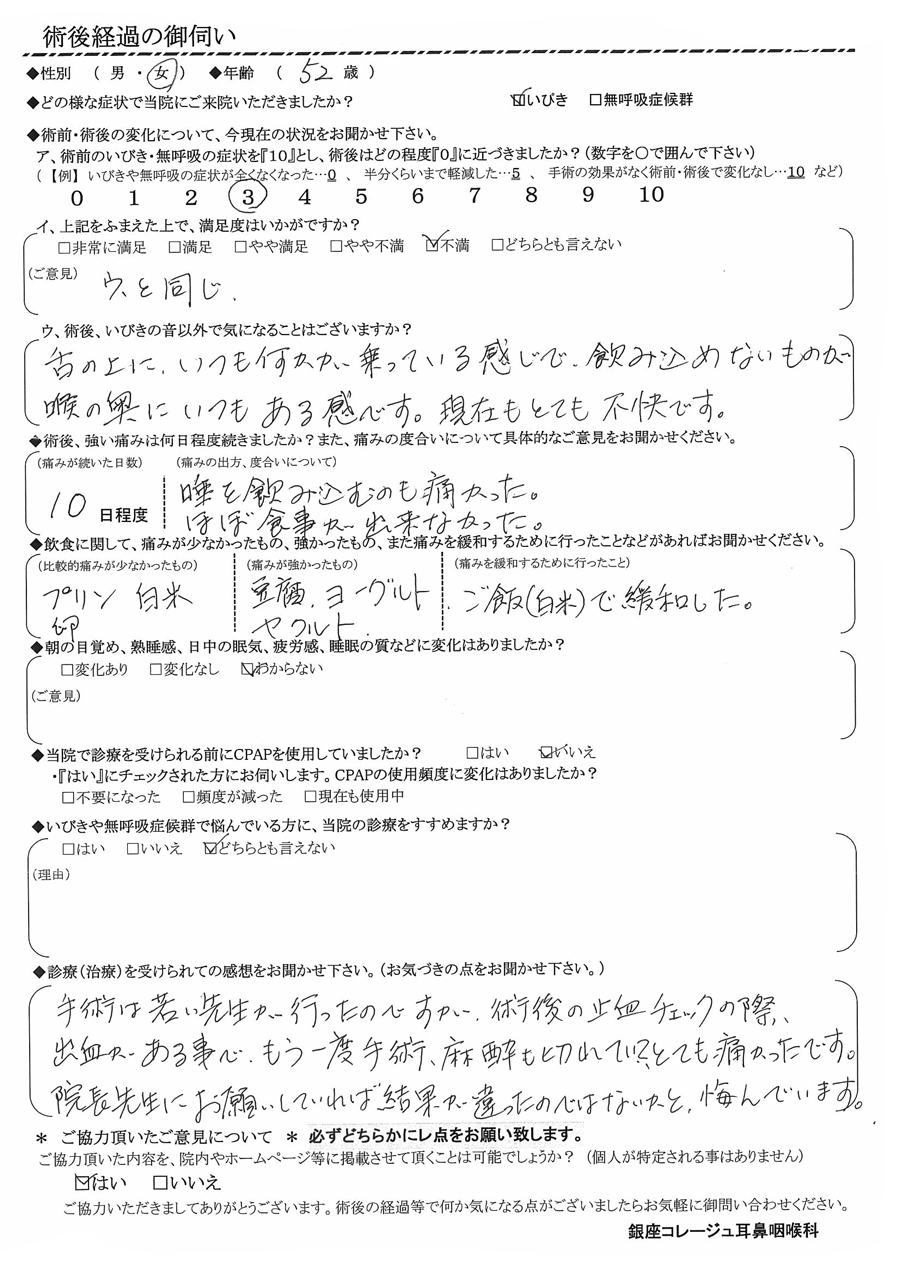 術後経過の御伺い
◆性別 （ 男 ・ 女 ） ◆年齢 （ 52 歳 ）
◆どの様な症状で当院にご来院いただきましたか？ ☑いびき □無呼吸症候群
◆術前・術後の変化について、今現在の状況をお聞かせ下さい。
ア、術前のいびき・無呼吸の症状を『10』とし、術後はどの程度『0』に近づきましたか？（数字を○で囲んで下さい）
（ 【例】 いびきや無呼吸の症状が全くなくなった…0 、 半分くらいまで軽減した…5 、 手術の効果がなく術前・術後で変化なし…10 など）
0 1 2 3 4 5 6 7 8 9 10
イ、上記をふまえた上で、満足度はいかがですか？
□非常に満足 □満足 □やや満足 □やや不満 ☑不満 □どちらとも言えない
（ご意見） ウ、と同じ.
ウ、術後、いびきの音以外で気になることはございますか？
舌の上に、いつも何かが乗っている感じで、飲み込めないものが
喉の奥にいつもある感じです。現在もとても不快です。
◆術後、強い痛みは何日程度続きましたか？また、痛みの度合いについて具体的なご意見をお聞かせください。
（痛みが続いた日数） （痛みの出方、度合いについて）
10 日程度 唾を飲み込むのも痛かった。
ほぼ食事が出来なかった。
◆飲食に関して、痛みが少なかったもの、強かったもの、また痛みを緩和するために行ったことなどがあればお聞かせください。
（比較的痛みが少なかったもの） （痛みが強かったもの） （痛みを緩和するために行ったこと）
プリン 白米 豆腐、ヨーグルト ご飯（白米）で緩和した。
卵 ヤクルト.
◆朝の目覚め、熟睡感、日中の眠気、疲労感、睡眠の質などに変化はありましたか？
□変化あり □変化なし ☑わからない
（ご意見）
◆当院で診療を受けられる前にCPAPを使用していましたか？ □はい ☑いいえ
・『はい』にチェックされた方にお伺いします。CPAPの使用頻度に変化はありましたか？
□不要になった □頻度が減った □現在も使用中
◆いびきや無呼吸症候群で悩んでいる方に、当院の診療をすすめますか？
□はい □いいえ ☑どちらとも言えない
（理由）
◆診療（治療）を受けられての感想をお聞かせ下さい。（お気づきの点をお聞かせ下さい。）
手術は若い先生が行ったのですが、術後の止血チェックの際、
出血がある事で、もう一度手術、麻酔も切れてい?とても痛かったです。
院長先生にお願いしていれば結果が違ったのではないかと、悔んでいます。
＊ ご協力頂いたご意見について ＊ 必ずどちらかにレ点をお願い致します。
ご協力頂いた内容を、院内やホームページ等に掲載させて頂くことは可能でしょうか？ （個人が特定される事はありません）
☑はい □いいえ
ご協力いただきましてありがとうございます。術後の経過等で何か気になる点がございましたらお気軽に御問い合わせください。
銀座コレージュ耳鼻咽喉科